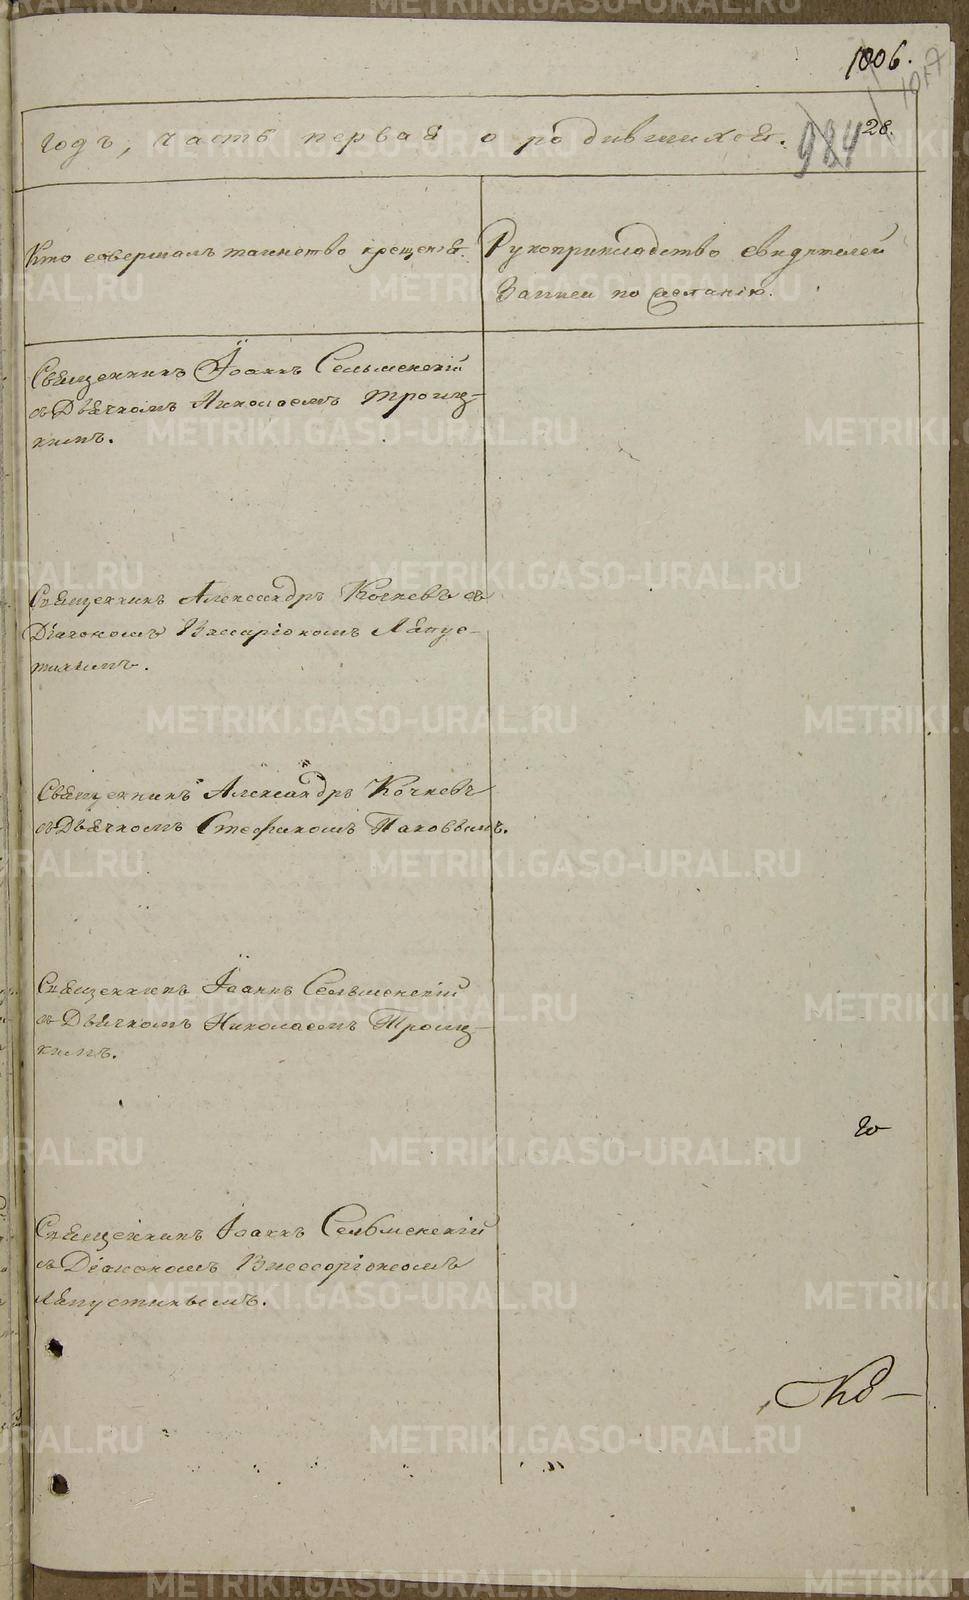 1006.
1017
годъ, часть первая о родившихся.
984
28.
Кто совершалъ таинство крещенія.
Рукоприкладство свидѣтелей
записи по желанію.
Священникъ Іоаннъ Сельменскій
съ Дьячкомъ Николаемъ Троиц-
кимъ.
Священникъ Александръ Кочневъ съ
Діакономъ Виссаріономъ Ляпус-
тинымъ.
Священникъ Александръ Кочневъ
съ Дьячкомъ Стефаномъ Паковымъ.
Священникъ Іоаннъ Сельменскій
съ Дьячкомъ Николаемъ Троиц-
кимъ.
Священникъ Іоаннъ Сельменскій
съ Діакономъ Виссаріономъ
Ляпустинымъ.
METRIKI.GASO-URAL.RU